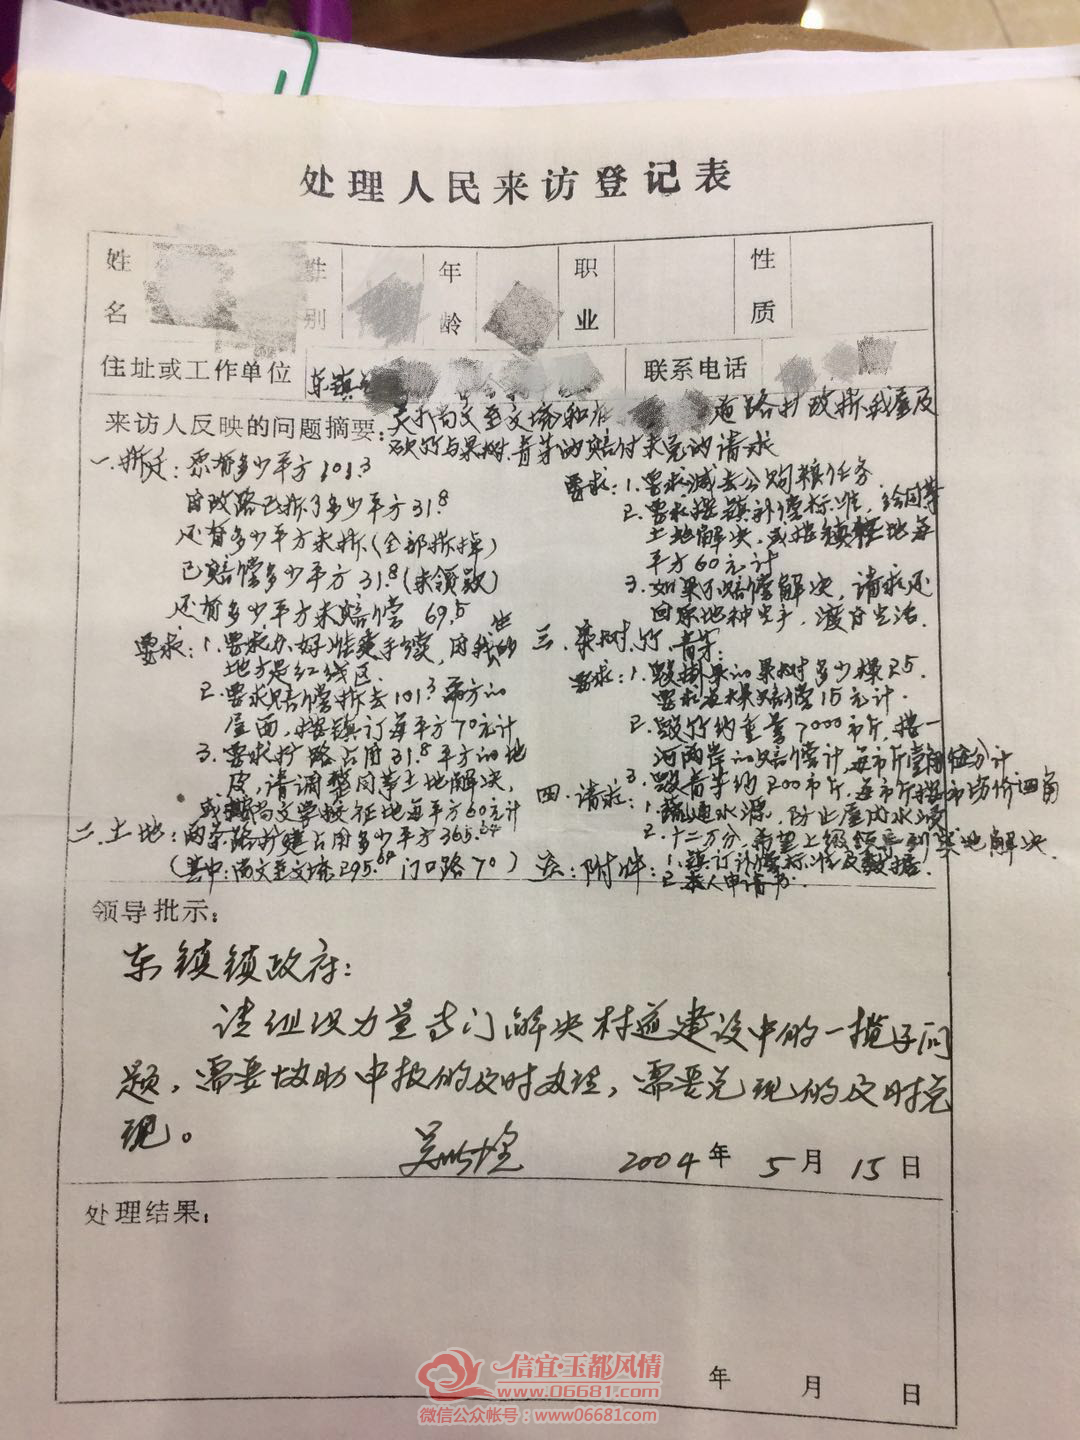 处理人民来访登记表
姓名 性别 年龄 职业 性质
住址或工作单位 东镇 联系电话
来访人反映的问题摘要: 关于尚文至文 和 道路扩改拆我屋及
砍竹与果树、青芽的赔付未兑的请求
一、拆迁: 原有多少平方101.3
因改路已拆了多少平方31.8
还有多少平方未拆(全部拆掉)
已赔偿多少平方31.8(未领款)
还有多少平方未赔偿69.5
要求: 1. 要求办好准建手续, 因我的
地方是红线区.
2. 要求赔偿拆去101.3平方的
屋面, 按镇订每平方70元计
3. 要求扩路占用31.8平方的地
皮, 请调整同等土地解决,
或 尚文学校征地每平方60元计
二、土地: 两条路扩建占用多少平方365.64
(其中: 尚文至文 295.64 门口路70)
要求: 1. 要求减去公购粮任务
2. 要求按镇补偿标准, 给同等
土地解决, 或按 地每
平方60元计
3. 如果不赔偿解决, 请求还
回原地种 , 渡日生活.
三、果树、竹、青芽:
要求: 1. 毁掉果的果树多少棵25.
要求每棵赔偿15元计
2. 毁竹约重量7000市斤, 按一
河两岸的赔偿计, 每市斤 分计
3. 毁青芽约200市斤, 每市斤按市场价四角
四、请求: 1. 疏通水源, 防止屋内水浸
2. 十二万分希望上级领导到实地解决.
五、附件: 1. 镇订补偿标准及数据.
2. 本人申请书.
领导批示:
东镇镇政府:
请组织力量专门解决村道建设中的一揽子问
题, 需要协助申报的及时办理, 需要兑现的及时兑
现。
2004年5月15日
处理结果:
年 月 日
信宜·玉都风情
www.06681.com
微信公众帐号: www06681com